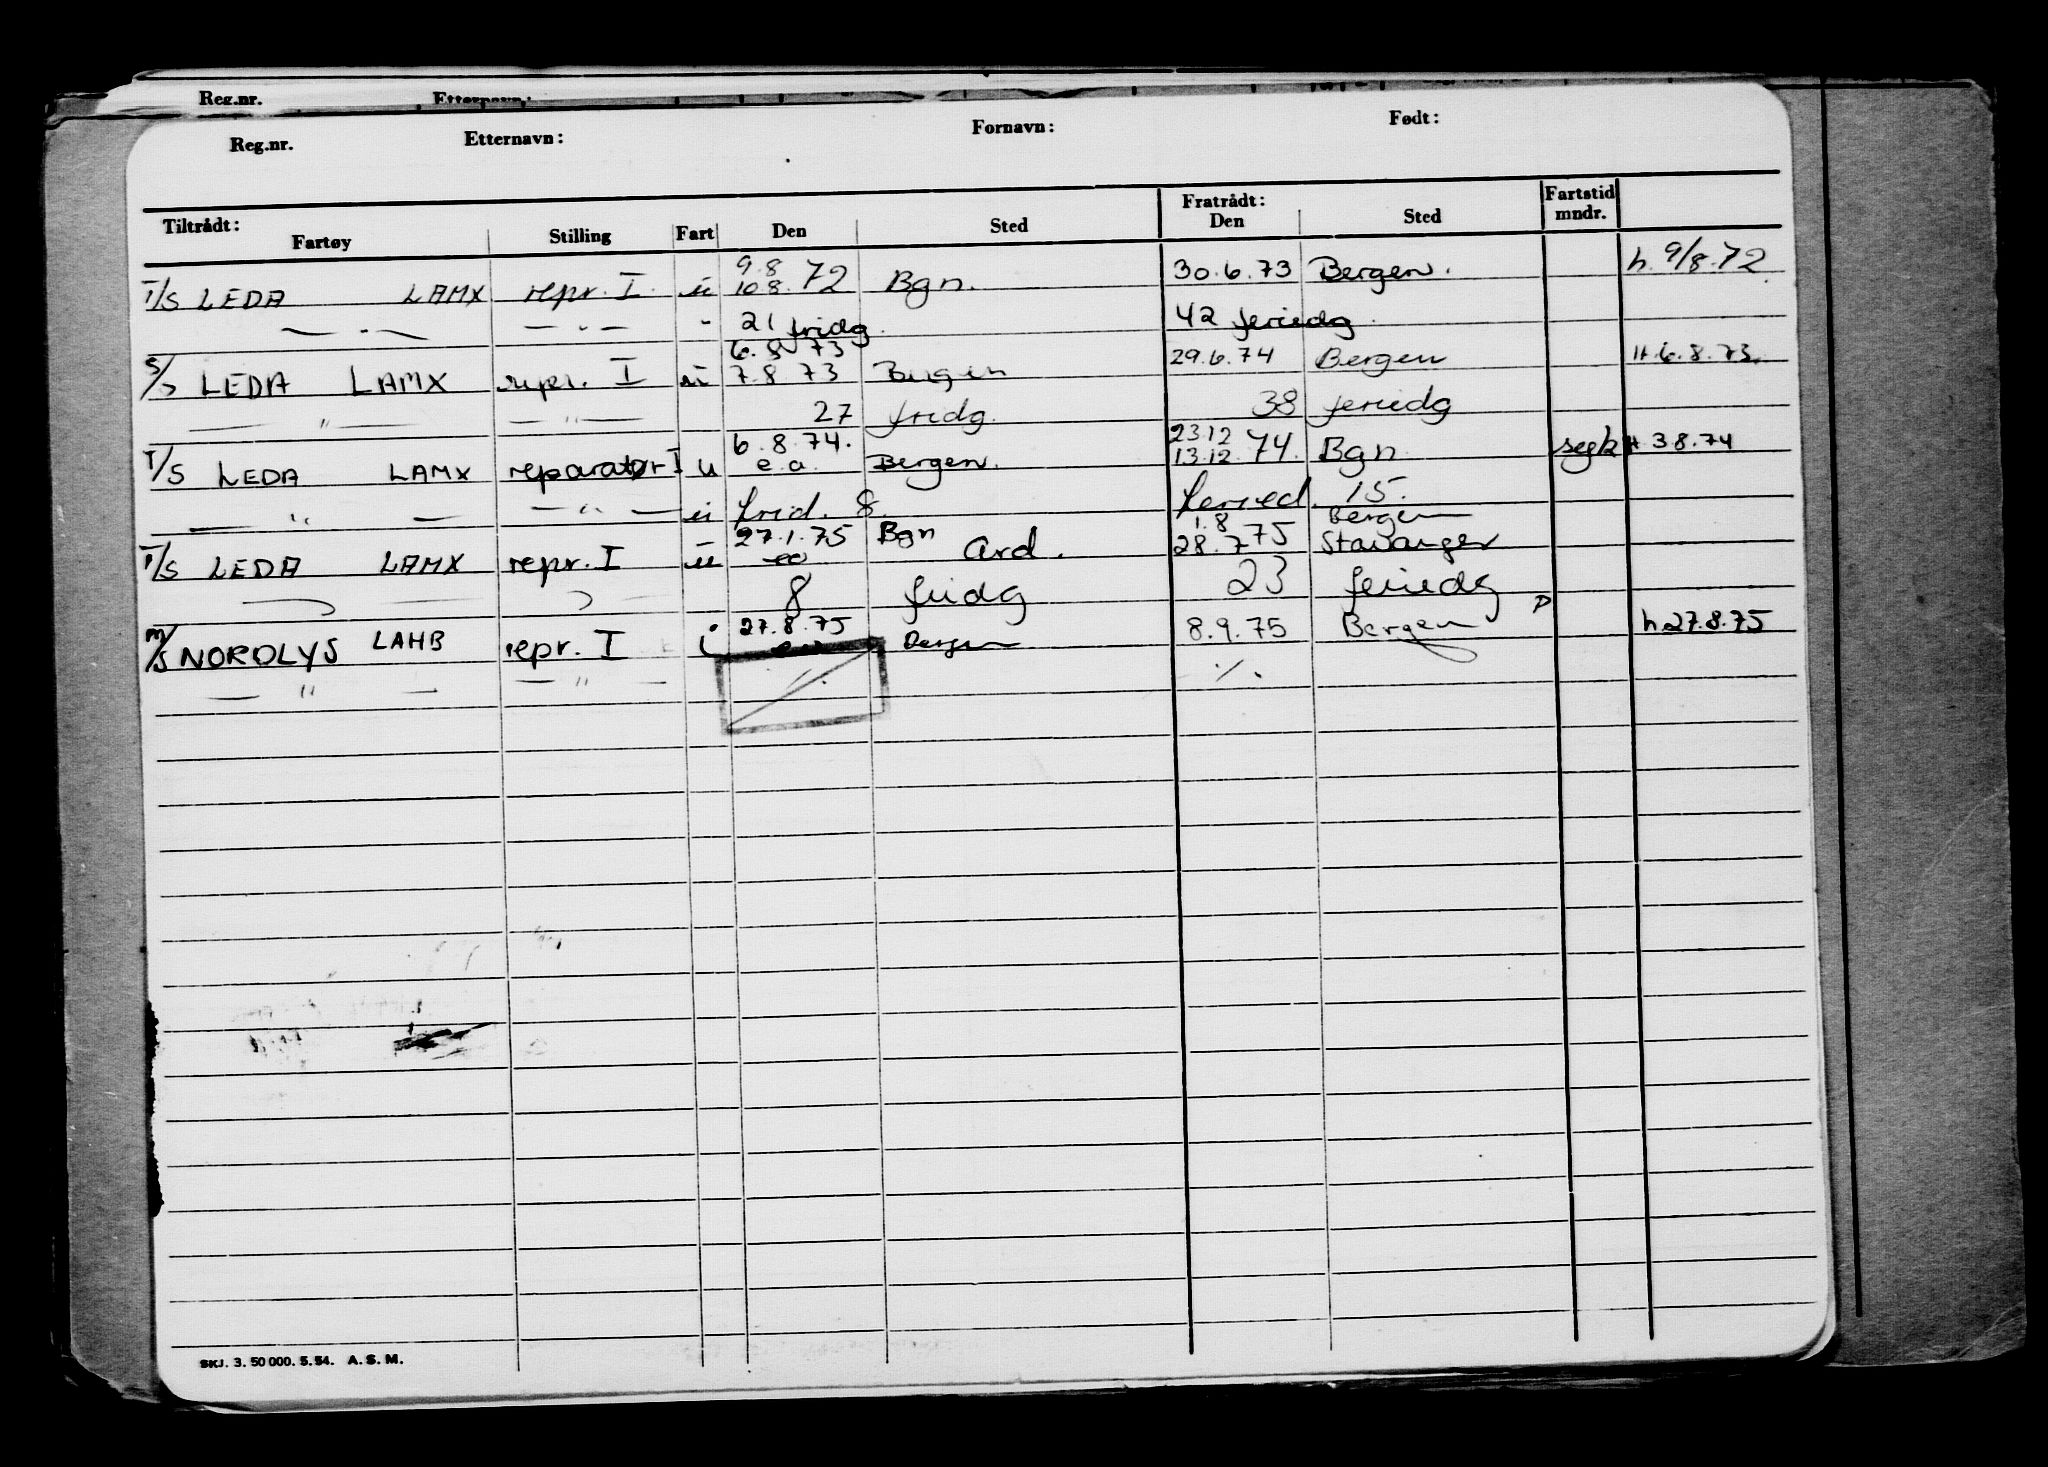 Reg.nr. Etternavn:
Reg.nr. Etternavn: Fornavn: Født:
Tiltrådt: Fratrådt: Fartstid
Fartøy Stilling Fart Den Sted Den Sted mndr.
9.8
T/S LEDA LAMX repr. I u 10.8. 72 Bgn. 30.6.73 Bergen. h. 9/8.72
— " — — " — " 21 fridg. 42 feriedg.
6.8 73
S/S LEDA LAMX repr. I u 7.8.73 Bergen 29.6.74 Bergen H.6.8.73.
— " — — " — 27 fridg. 38 feriedg
6.8.74. 23.12
T/S LEDA LAMX reparatør I u e.a. Bergen. 13.12.74. Bgn. segk H 3.8.74
— " — — " — u frid. 8. feried. 15.
27.1.75 Bgn 1.8 Bergen
T/S LEDA LAMX repr. I u ea Ard. 28.7 75 Stavanger
8 fridg 23 feriedg
27.8.75
M/S NORDLYS LAHB repr. I i ea Bergen 8.9.75 Bergen P h.27.8.75
— " — — " — ./. ./.
SKJ. 3. 50 000. 5.54. A.S.M.